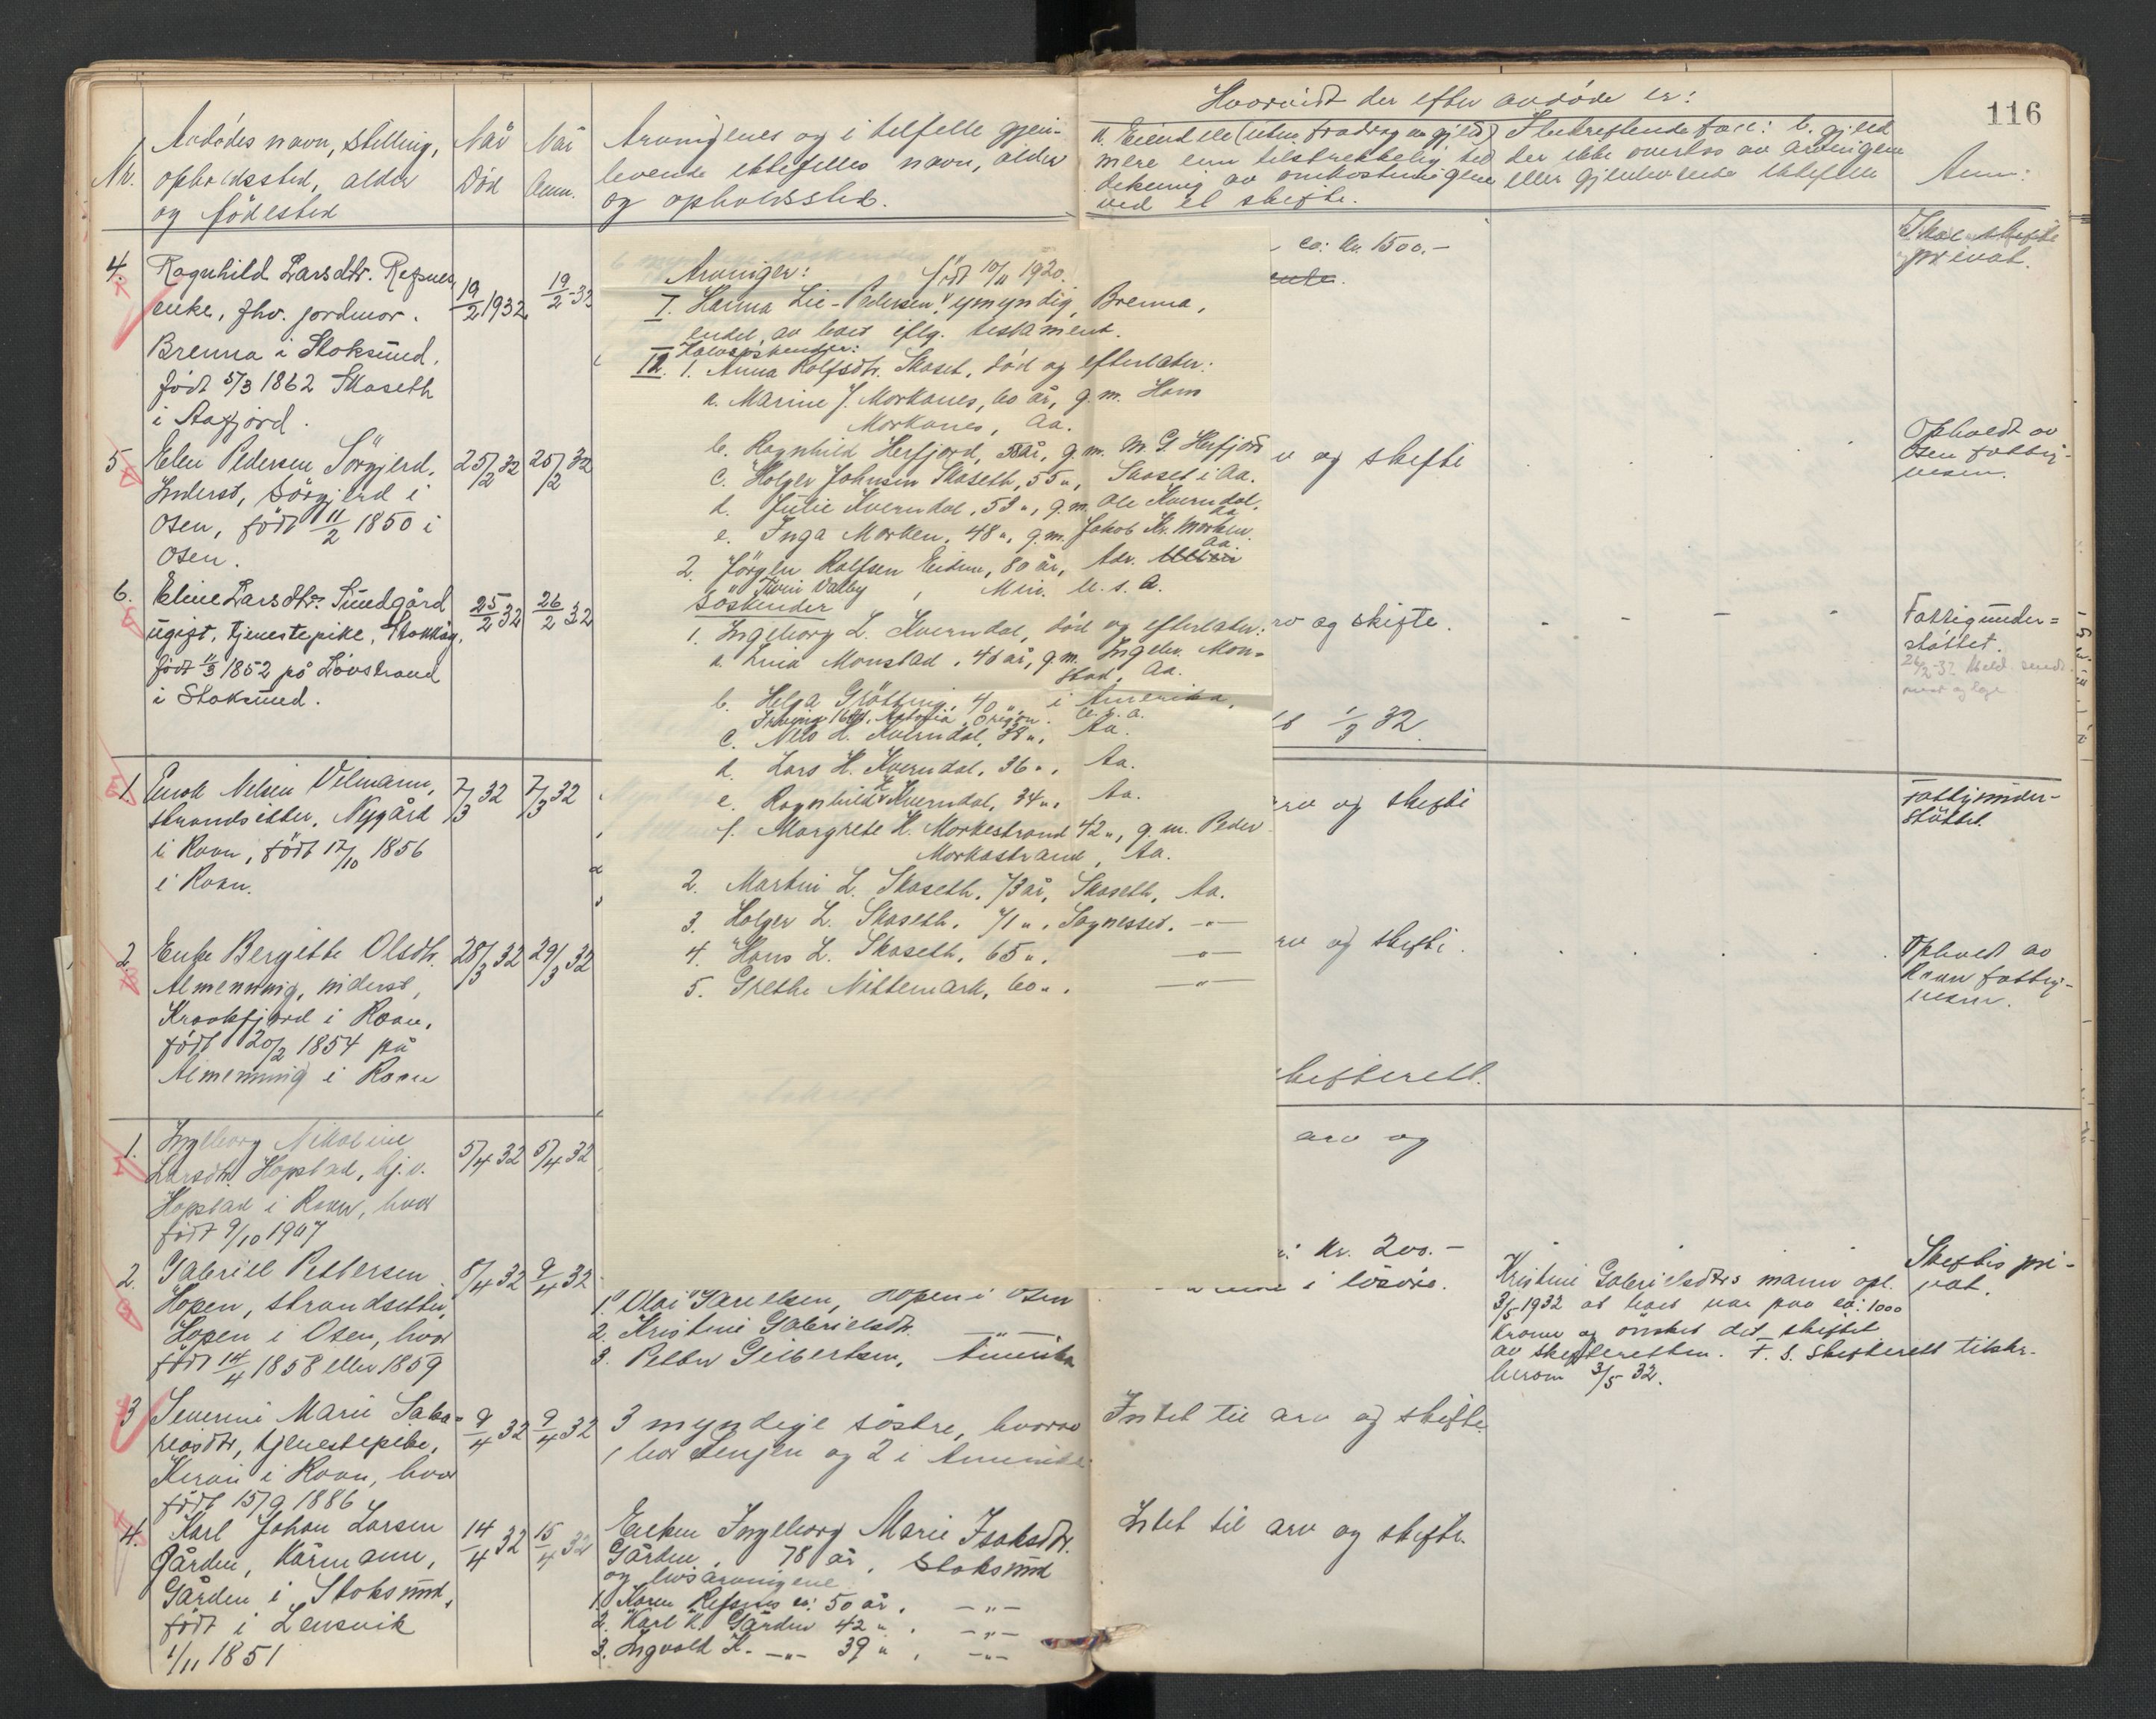 116
Nr.
Avdödes navn, stilling,
opholdssted, alder
og födested
Når
Död
Når
Anm.
Arvingenes og i tilfelle gjen-
levende ektefelles navn, alder
og opholdssted.
Hvorvidt der efter avdöde er:
a. Eiendele (uten fradrag av gjeld)
mere enn tilstrekkelig til
dekning av omkostningene
ved et skifte.
I bekreftende fall: b. gjeld
der ikke overtas av arvingene
eller gjenlevende ektefelle
Anm:
4. Ragnhild Larsdtr. Refsnes
enke, fhv. jordmor.
Brenna i Stoksund.
født 5/3 1862 Skaseth
i Aafjord.
19/2 1932
19/2-32
ca: kr. 1500.-
Skal skifte
privat.
5 Elen Pedersen Sörgjerd.
Inderst, Sörgjerd i
Osen, født 11/2 1850 i
Osen.
25/2 32
25/2 32
v og skifte
Opholdt av
Osen fattig-
vesen.
6. Eline Larsdtr. Sundgård
ugift, tjenestepike, Stokköy,
født 11/3 1852 på Lövstrand
i Stoksund.
25/2 32
26/2 32
rv og skifte.
Fattigunder=
støttet.
26/2-32 Meld. sendt
1/3 32.
1. Enok Nelsen Vilmann,
strandsitter, Nygård
i Roan, født 17/10 1856
i Roan.
7/3 32
7/3 32
arv og skifte
Fattigunder-
støttet.
2. Enke Bergitte Olsdtr.
Almenning, inderst,
Kraakfjord i Roan,
født 20/2 1854 på
Almenning i Roan
28/3 32
29/3 32
arv og skifte.
Opholdt av
Roan fattig-
vesen.
skifterett.
1. Ingeborg Nikoline
Larsdtr. Hopstad, hj.v.
Hopstad i Roan, hvor
født 9/10 1907
5/4 32
5/4 32
arv og
2. Gabriel Pettersen
Hopen, strandsitter,
Hopen i Osen, hvor
født 14/4 1858 eller 1859
8/4 32
9/4 32
1. Olai Karelsen, Hopen i Osen
2. Kristine Gabrielsdtr. -"-
3. Petter Geibertsen, Amerika
kr. 200.-
i lösöre.
Kristine Gabrielsdtrs mann opl.
3/5-1932 at boet var paa ca: 1000
kroner og önsket det skiftet
av skifteretten. F. S. Skifterett tilskr.
herom 3/5 32.
Skiftes pri-
vat.
3 Severine Marie Saka=
riasdtr, tjenestepike,
Kiran i Roan, hvor
født 15/9 1886
9/4 32
9/4 32
3 myndige söstre, hvorav
1 bor Senjen og 2 i Amerika
Intet til arv og skifte.
4. Karl Johan Larsen
Gården, kårmann,
Gården i Stoksund,
født i Lensvik
1/11 1851
14/4 32
15/4 32
Enken Ingeborg Marie Isaksdtr.
Gården, 78 år, Stoksund
og livsarvingene
1. Karen Refsnes ca: 50 år, -"-
2. Karl K. Gården 42 ", -"-
3. Ingvald K. -"- 39 ", -"-
Intet til arv og skifte.
Arvinger: født 10/11 1920.
I. Hanna Lie-Pedersen, umyndig, Brenna,
endel av boet iflg. testament.
Halvsöskender:
II. 1. Anna Rolfsdtr. Skaset, död og efterlater:
a. Marine J. Morkanes, 60 år, g.m. Hans
Morkanes, Aa.
b. Ragnhild Herfjord, 58 år, g.m. M. G. Herfjord
c. Holger Johnsen Skaseth, 55 ", Skaset i Aa.
d. Julie Kverndal, 53 ", g.m. Ole Kverndal, Aa
e. Inga Morken, 48 ", g.m. Jakob Kr. Morken. Aa.
2. Jörgen Rolfsen Eidem, 80 år, Adr.
Twin Valley, Min. U.S.A.
Söskender
1. Ingeborg L. Kverndal, död og efterlater:
a. Lina Monstad, 46 år, g.m. Ingebr. Mon=
stad, Aa.
b. Helga Gröttning, 40 ", i Amerika,
Astoria, Oregon. U.S.A.
c. Nils H. Kverndal, 38 ", Aa.
d. Lars H. Kverndal, 36 ", Aa.
e. Ragnhild H. Kverndal, 34 ", Aa.
f. Margrete H. Morkestrand 42 ", g.m. Peder
Morkastrand, Aa.
2. Martin L. Skaseth, 73 år, Skaseth, Aa.
3. Holger L. Skaseth, 71 ", Sagnesset, -"-
4. Hans L. Skaseth, 65 ", -"-
5. Grethe Nittemark, 60 ", -"-